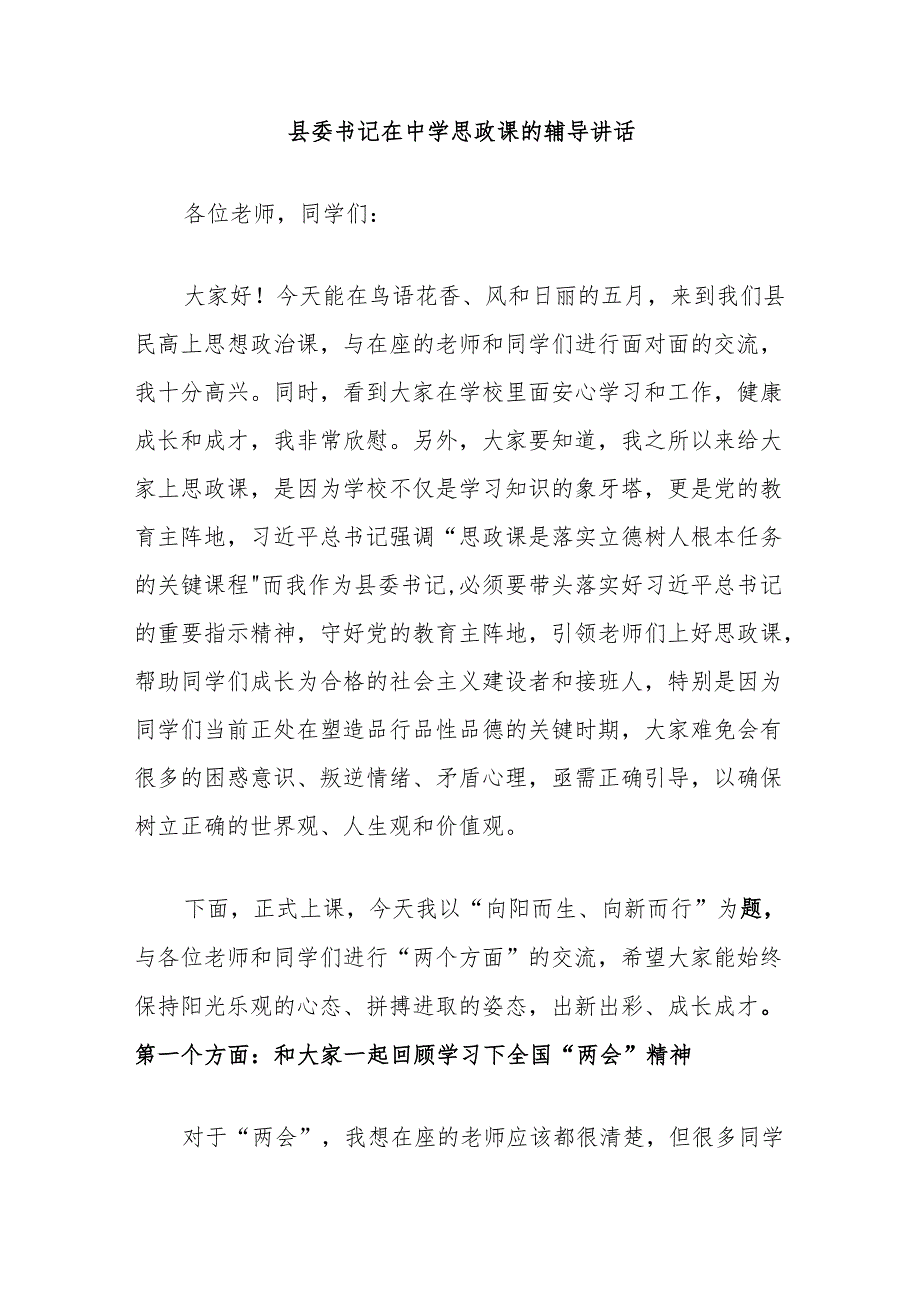 县委书记在中学思政课的辅导讲话
各位老师，同学们：
大家好！今天能在鸟语花香、风和日丽的五月，来到我们县
民高上思想政治课，与在座的老师和同学们进行面对面的交流，
我十分高兴。同时，看到大家在学校里面安心学习和工作，健康
成长和成才，我非常欣慰。另外，大家要知道，我之所以来给大
家上思政课，是因为学校不仅是学习知识的象牙塔，更是党的教
育主阵地，习近平总书记强调“思政课是落实立德树人根本任务
的关键课程"而我作为县委书记,必须要带头落实好习近平总书记
的重要指示精神，守好党的教育主阵地，引领老师们上好思政课，
帮助同学们成长为合格的社会主义建设者和接班人，特别是因为
同学们当前正处在塑造品行品性品德的关键时期，大家难免会有
很多的困惑意识、叛逆情绪、矛盾心理，亟需正确引导，以确保
树立正确的世界观、人生观和价值观。
下面，正式上课，今天我以“向阳而生、向新而行”为题，
与各位老师和同学们进行“两个方面”的交流，希望大家能始终
保持阳光乐观的心态、拼搏进取的姿态，出新出彩、成长成才。
第一个方面：和大家一起回顾学习下全国“两会”精神
对于“两会”，我想在座的老师应该都很清楚，但很多同学